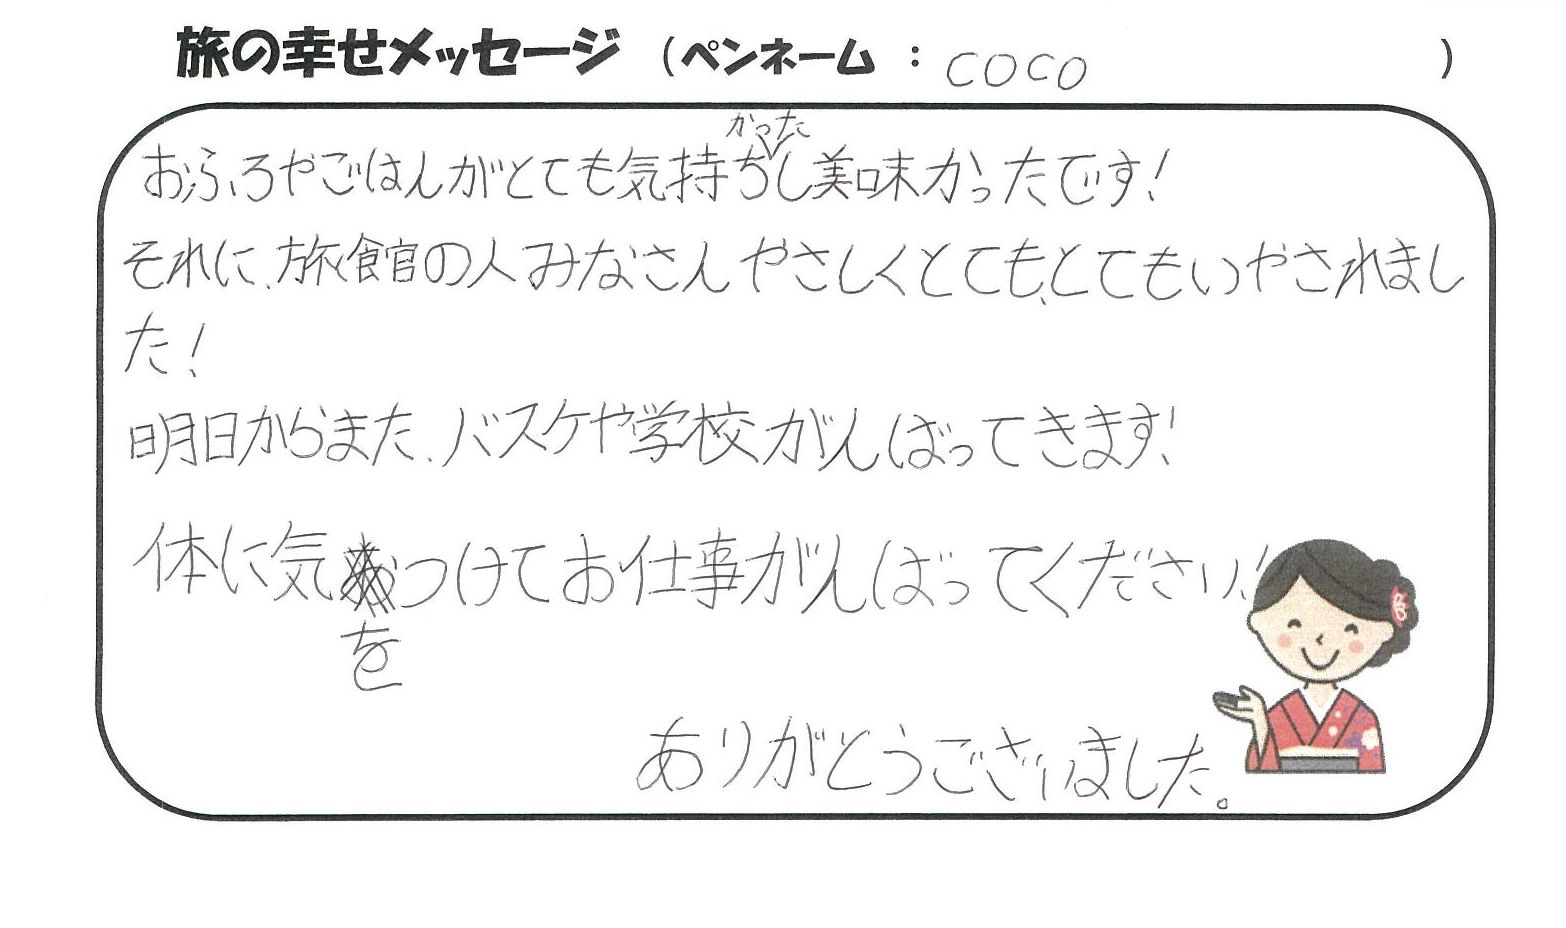 旅の幸せメッセージ (ペンネーム : coco )
おふろやごはんがとても気持ちかったし美味かったです!
それに、旅館の人みなさんやさしくとても、とてもいやされまし
た!
明日からまた、バスケや学校がんばってきます!
体に気をつけてお仕事がんばってください!
ありがとうございました。